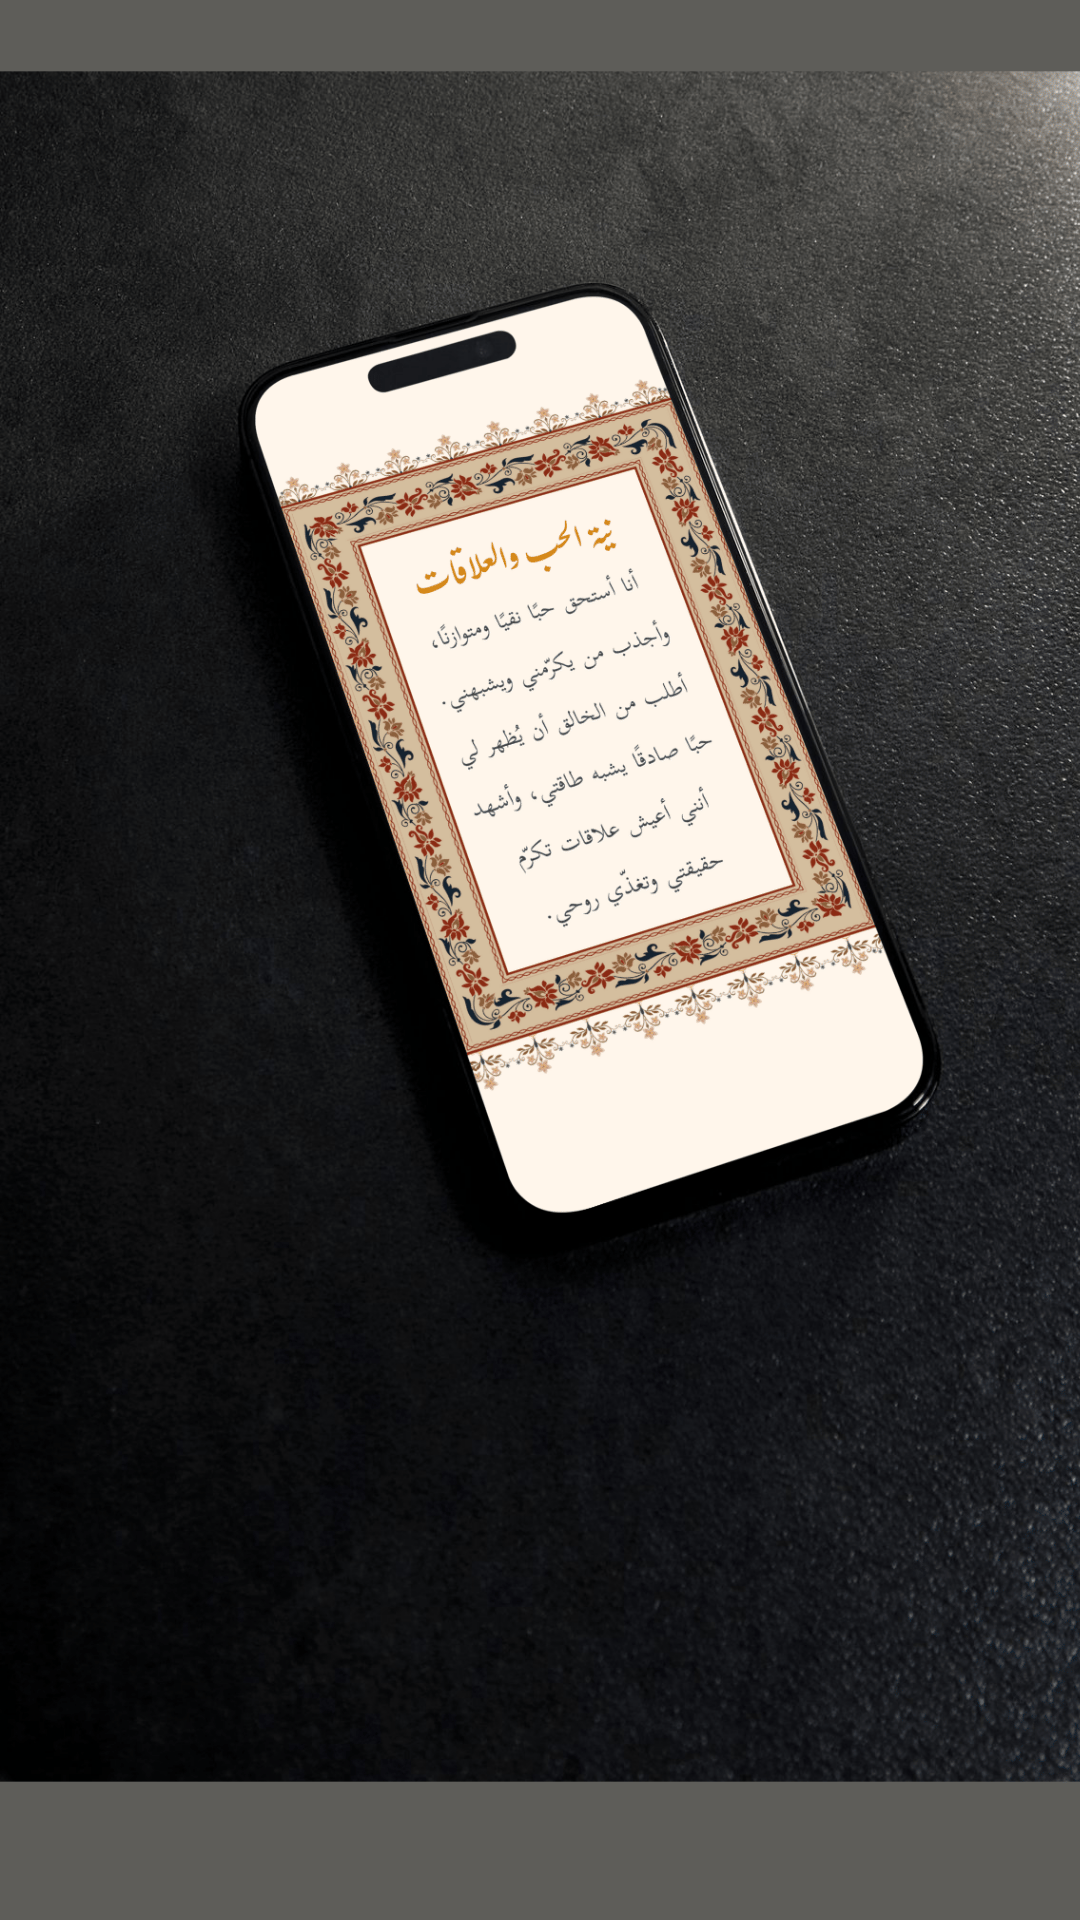 نية الحب والعلاقات
أنا أستحق حبًا نقيًا ومتوازنًا،
وأجذب من يكرّمني ويشبهني.
أطلب من الخالق أن يُظهر لي
حبًا صادقًا يشبه طاقتي، وأشهد
أنني أعيش علاقات تكرّم
حقيقتي وتغذّي روحي.